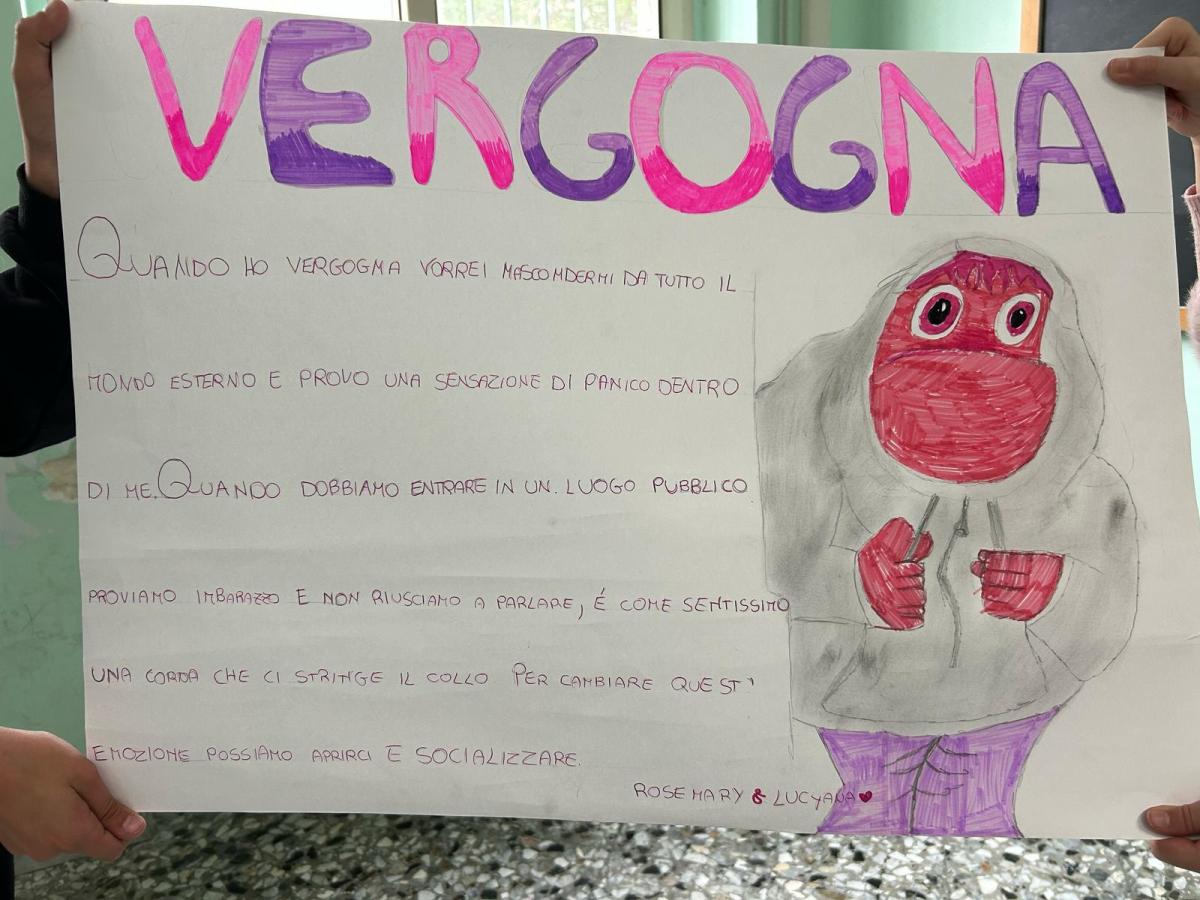 VERGOGNA
QUANDO HO VERGOGNA VORREI NASCONDERMI DA TUTTO IL
MONDO ESTERNO E PROVO UNA SENSAZIONE DI PANICO DENTRO
DI ME. QUANDO DOBBIAMO ENTRARE IN UN. LUOGO PUBBLICO
PROVIAMO IMBARAZZO E NON RIUSCIAMO A PARLARE, É COME SENTISSIMO
UNA CORDA CHE CI STRINGE IL COLLO PER CAMBIARE QUEST'
EMOZIONE POSSIAMO APRIRCI E SOCIALIZZARE.
ROSEMARY & LUCYANA ♥